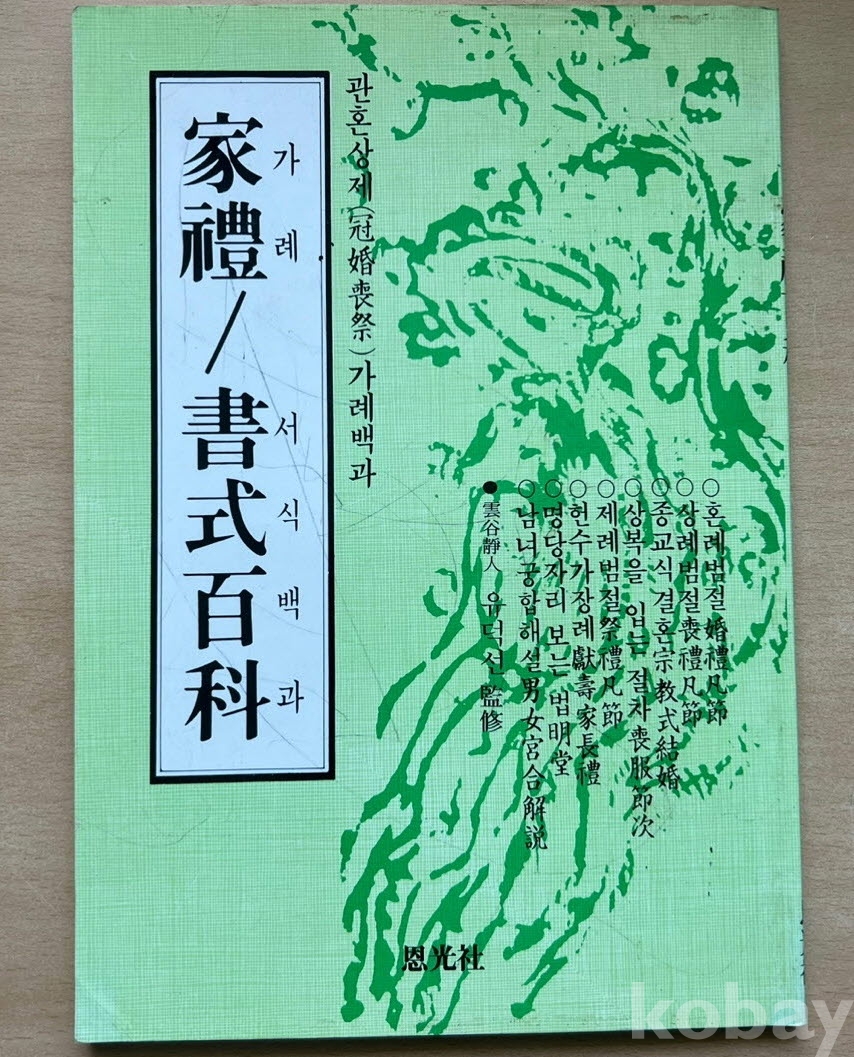 家禮/書式百科
가례 서식백과
관혼상제(冠婚喪祭)가례백과
○혼례범절婚禮凡節
○상례범절喪禮凡節
○종교식결혼宗教式結婚
○상복을 입는 절차喪服節次
○제례범절祭禮凡節
○헌수가장례獻壽家長禮
○명당자리 보는 법明堂
○남녀궁합해설男女宮合解説
●雲谷靜人 유덕선 監修
恩光社
kobay